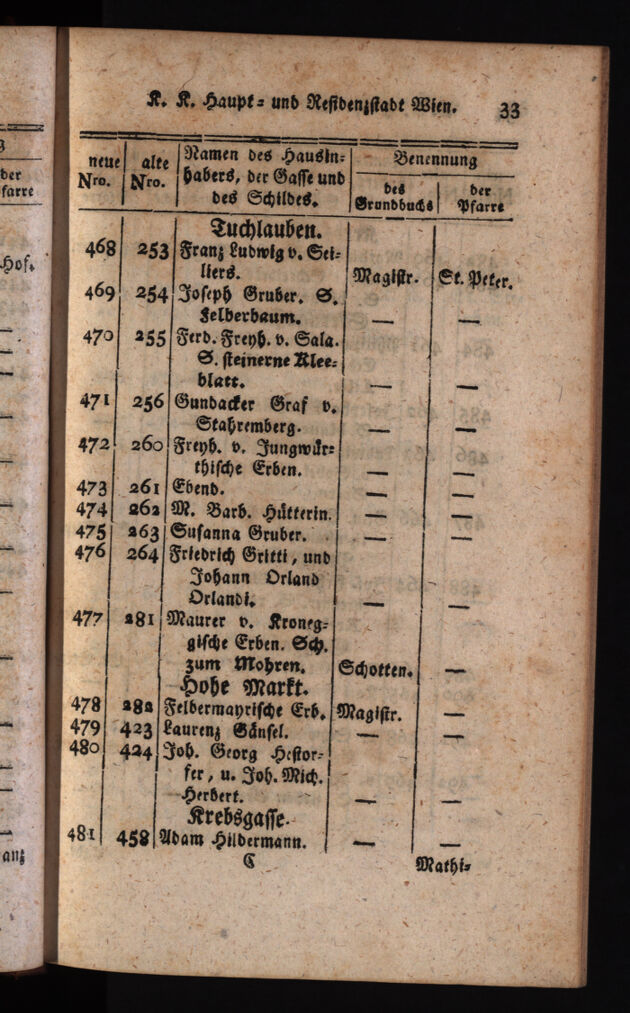 K. K. Haupt- und Residenzstadt Wien. 33
neue Nro. | alte Nro. | Namen des Hausin-habers, der Gasse und des Schildes. | Benennung
des Grundbuchs | der Pfarre
Tuchlauben.
468 253 Franz Ludwig v. Sei-
liers. Magistr. St. Peter.
469 254 Joseph Gruber. S.
Felberbaum. — —
470 255 Ferd. Freyh. v. Sala.
S. steinerne Klee-
blatt. — —
471 256 Gundacker Graf v.
Stahremberg. — —
472 260 Freyh. v. Jungwür-
thische Erben. — —
473 261 Ebend. — —
474 262 M. Barb. Hütterin. — —
475 263 Susanna Gruber. — —
476 264 Friedrich Gritti, und
Johann Orland
Orlandi. — —
477 281 Maurer v. Kroneg-
gische Erben. Sch.
zum Mohren. Schotten. —
Hohe Markt.
478 282 Felbermayrische Erb. Magistr. —
479 423 Laurenz Gänsel. — —
480 424 Joh. Georg Hestor-
fer, u. Joh. Mich.
Herbert. — —
Krebsgasse.
481 458 Adam Hildermann. — —
C Mathi-
der
farre
Hof.
anz